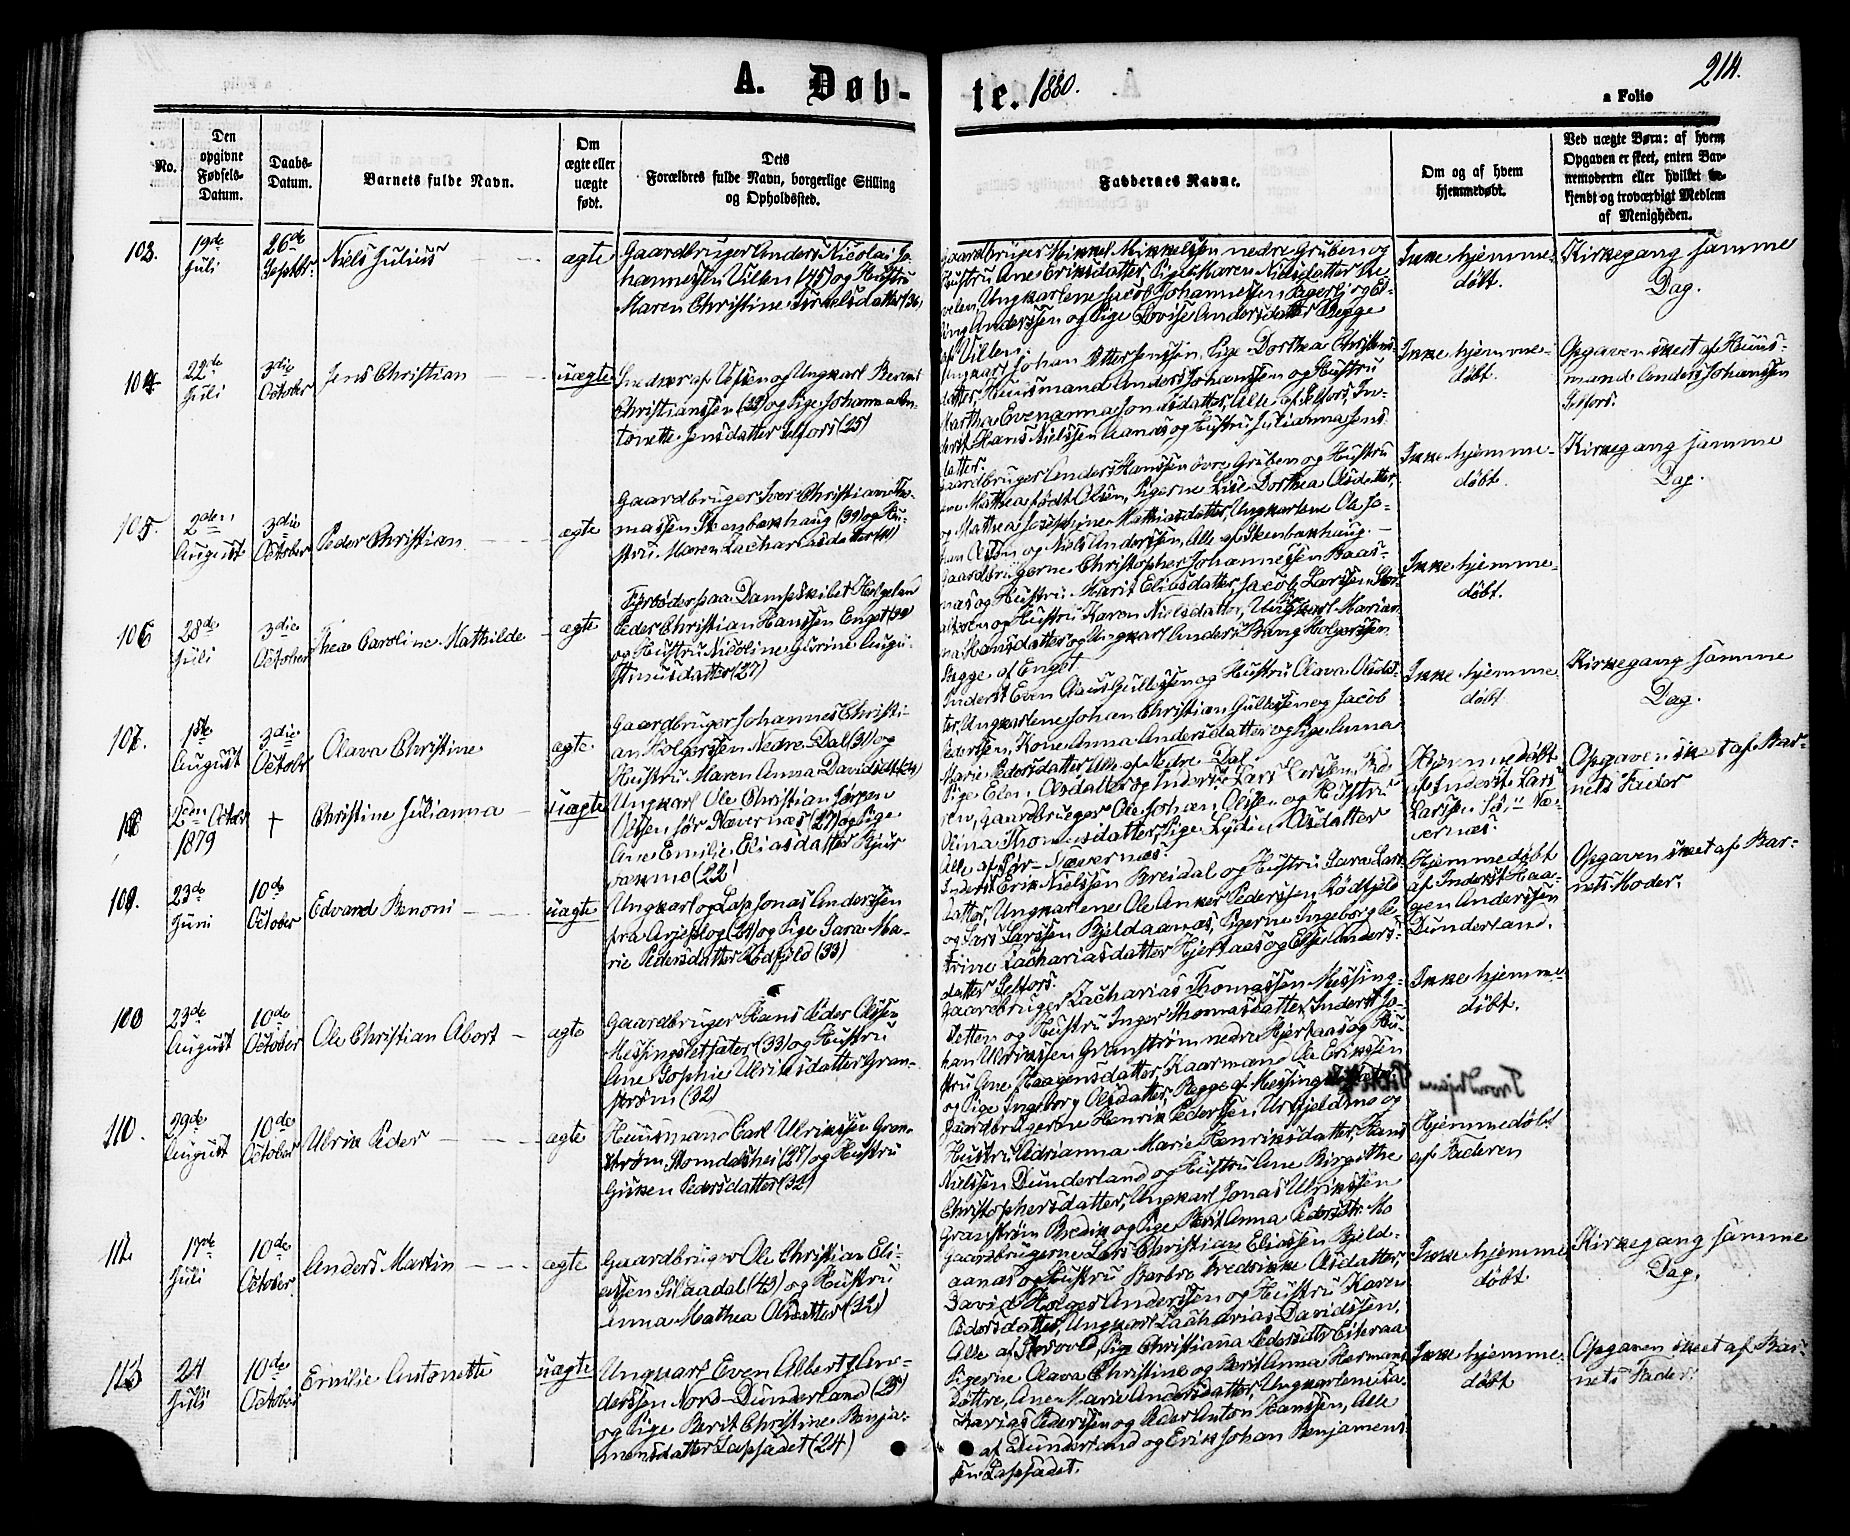 A. Døb-
te. 1880.
214.
a Folio
No.
Den
opgivne
Fødsels-
Datum.
Daabs-
Datum.
Barnets fulde Navn.
Om
ægte eller
uægte
født.
Dets
Forældres fulde Navn, borgerlige Stilling
og Opholdssted.
Faddernes Navne.
Om og af hvem
hjemmedøbt.
Ved uægte Børn: af hvem
Opgaven er skeet, enten Bar-
nemoderen eller hvilket be-
kjendt og troværdigt Medlem
af Menigheden.
103.
19de
Juli
26de
Septbr.
Niels Julius
ægte
Gaardbruger Anders Nicolai Jo-
hannessen Villen (45) og Hustru
Maren Christine
Gaardbruger Mikkel Mikkelsen nedre Gruben og
Hustru Ane Eriksdatter, Pige Maren Nielsdatter
Ungkarlene Jacob Johannessen
Anderssen og Pige Lovise Andersdatter Begge
af Villen.
Ikke hjemme-
døbt.
Kirkegang samme
Dag.
104
22de
Juli
3die
October
Jens Christian
uægte
Inderst af og Ungkarl Bernt
Christianssen (33) og Pige Johanna An-
tonette Jensdatter Selfors (25)
Ungkarl Johan Pige Dorthea Christens-
datter, Huusmand Anders Johanssen og Hustru
Martha Evenanna Jonasdatter, Alle af Selfors, In-
derst Hans Nielssen Aanæs og Hustru Julianna Jens-
datter.
Ikke hjemme-
døbt.
Opgaven skeet af Huus-
mand Anders Johanssen
Selfors.
105.
2den
August
3die
October
Peder Christian
ægte
Gaardbruger Iver Christian Tho-
massen Stenbakhaug (39) og Hu-
stru Maren Zachariasdatter
Gaardbruger Anders Hanssen øvre Gruben og Hustru
Mathea født Olsen, Pigerne Lise Dorthea Olsdatter,
og Mathea Josephine Mathiasdatter, Ungkarlene Ole Jo-
han Olsen og Niels Anderssen, Alle af Stenbakhaug.
Ikke hjemme-
døbt.
Kirkegang samme
Dag.
106
28de
Juli
3die
October
Thea Caroline Mathilde
ægte
Fyrbøder paa Dampskibet Helgeland
Peder Christian Hanssen Enget
og Hustru Nicoline Gurine Augu-
stinusdatter (27)
Gaardbrugerne Christopher Johannessen Baas-
næs og Hustru Marit Eliasdatter, Jacob Larssen
og Hustru Karen Nielsdatter, Ungkarl Marian-
na Hansdatter og Ungkarl Anders Bang Holgerssen
Begge af Enget
Ikke hjemme-
døbt.
107.
1ste
August
3die
Octobr
Olava Christine
ægte
Gaardbruger Johannes Christi-
an Holgerssen Nedre-Dal (31) og
Hustru Maren Anna Davidsdtr
Inderst Even Olaus Gullessen og Hustru Olava Olsdat-
ter, Ungkarlene Johan Christian Gullessen og Jacob
Pederssen, Kone Anna Andersdatter og Pige Anna
Marie Pedersdatter Alle af Nedre Dal
Ikke hjemme-
døbt.
Kirkegang samme
Dag.
108
2den Octbr
1879
+
Christine Julianna
uægte
Ungkarl Ole Christian Jørgen
Olssen Sør Nævernæs (27) og Pige
Ane Emilie Eliasdatter
(22)
Pige Elen Olsdatter og Inderst Lars Larssen
Gaardbruger Ole Johan Olssen og Hustru
Olina Thomasdatter, Pige Lydia Olsdatter
Alle af Sør-Nævernæs.
Hjemmedøbt
af Inderst Lars
Larssen Sør Næ-
vernæs.
Opgaven skeet af Bar-
nets Fader
109.
23de
Juni
10de
October
Edvard Benoni
uægte
Ungkarl og Lap Jonas Anderssen
fra Arjeplog (24) og Pige Sara Ma-
rie Pedersdatter Rødfjeld (33)
Inderst Erik Nielssen Bredal og Hustru Sara Lars-
datter, Ungkarlene Ole Anker Pederssen Rødfjeld
og Lars Larssen Bjeldaanæs, Pigerne Ingeborg Pe-
trine Zachariasdatter Hjertaas og Else Anders-
datter Selfors.
Hjemmedøbt
af Inderst Haa-
gen Anderssen
Dunderland.
Opgaven skeet af Bar-
nets Moder.
23de
August
10de
October
Ole Christian Abort
ægte
Gaardbruger Hans Peder Olssen
Messingslet (33) og Hustru
Ane Sophie Ulriksdatter Gran-
strøm (32)
Gaardbruger Zacharias Thomassen Messing-
sletten og Hustru Inger Thomasdatter, Inderst Jo-
han Ulrikssen Granstrøm nedre Hjertaas og Hu-
stru Ane Haagensdatter, Kaarmand Ole Erikssen
og Pige Ingeborg Olsdatter, Begge af
Ikke hjemme-
døbt.
110.
29de
August
10de
October
Ulrik Peder
ægte
Huusmand Carl Ulrikssen Gran-
strøm Stomdalshei (27) og Hustru
Gisken Pedersdatter (32)
Gaardbrugerne Henrik Pederssen Urtfjeldmo og
Hustru Adrianna Marie Henriksdatter, Hans
Nielssen Dunderland og Hustru Ane Birgithe
Christophersdatter, Ungkarl Jonas Ulrikssen
Granstrøm Bredik og Pige Berit Anna Pedersdtr. Mo
Hjemmedøbt
af Faderen
111.
17de
Juli
10de
October
Anders Martin
ægte
Gaardbruger Ole Christian Eli-
assen Stilaadal (43) og Hustru
Anna Mathea Olsdatter (32)
Gaardbrugerne Lars Christian Eliassen Bjeld-
aanæs og Hustru Barbro Fredrikke Olsdatter,
David Holger Anderssen og Hustru Karen
Pedersdatter, Ungkarl Zacharias Davidssen,
Alle af Storvold, Pige Christiana Pedersdtr Eiteraa
Ikke hjemme-
døbt.
Kirkegang samme
Dag.
112
24
Juli
10de
October
Emilie Antonette
uægte
Ungkarl Even Albert An-
derssen Nord-Dunderland (25)
og Pige Berit Christine Benja-
minsdatter Lapsædet (24)
Pigerne Olava Christine og Berit Anna Hermans
Døttre, Ane Marie Andersdatter, Ungkarlene Za-
karias Pederssen og Peder Anton Hanssen, Alle
af Dunderland og Erik Johan Benjamins-
sen Lapsædet.
Ikke hjemme-
døbt
Opgaven skeet af Bar-
nets Fader.